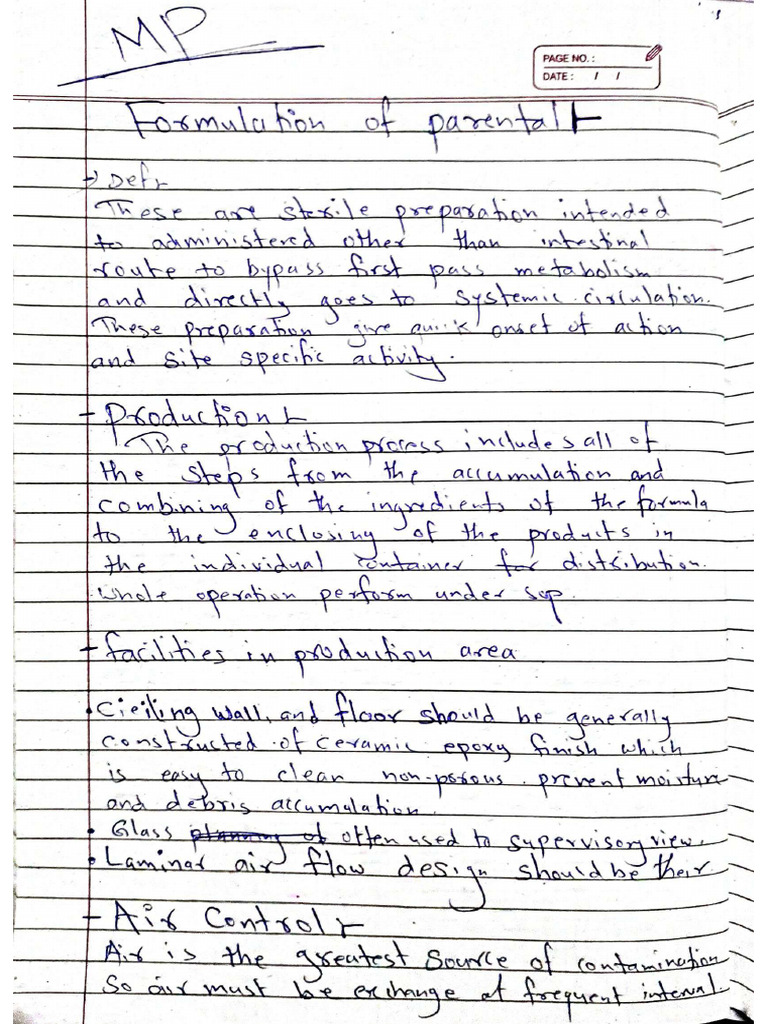 MP
PAGE NO.:
DATE: / /
Formulation of parental
→ Defn
These are sterile preparation intended
to administered other than intestinal
route to bypass first pass metabolism
and directly goes to systemic circulation.
These preparation give quick onset of action
and site specific activity.
- Production
The production process includes all of
the steps from the accumulation and
combining of the ingredients of the formula
to the enclosing of the products in
the individual container for distribution.
Whole operation perform under sop.
- facilities in production area
• Cieiling wall, and floor should be generally
constructed of ceramic epoxy finish which
is easy to clean non-porous prevent moisture
and debris accumulation.
• Glass often used to supervisory view.
• Laminar air flow design should be their
- Air Control
Air is the greatest source of contamination
So air must be exchange at frequent interval.